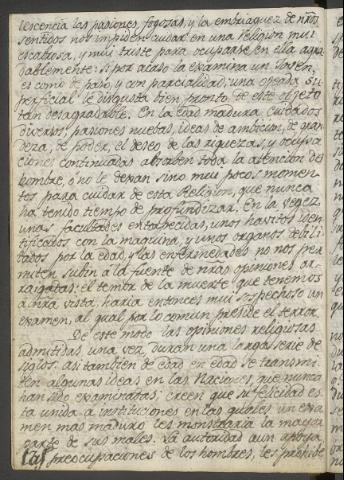 lescencia las pasiones, fogosas, y la embriaguez de nros
sentidos nos impiden cuidar en una religion mui
escabrosa, y mui triste para ocuparse en ella agra
dablemente: si por acaso la examina un joven
es como de paso, y con parcialidad; una ojeada su
perficial le disgusta bien pronto de este objeto
tan desagradable. En la edad madura cuidados
diversos, pasiones nuebas, ideas de ambicion, de gran
deza, de poder, el deseo de las riquezas, y ocupa
ciones continuadas absorben toda la atencion del
hombre, ó no le dexan sino mui pocos momen
tos para cuidar de esta Religion, que nunca
ha tenido tiempo de profundizar. En la vegez
unas facultades entorpecidas, unos havitos iden
tificados con la maquina, y unos organos debili
tados por la edad, y las enfermedades no nos per
miten subir á la fuente de nras opiniones ar
raigadas: el temor de la muerte que tenemos
á nra vista, haria entonces mui sospechoso un
examen, al qual por lo comun preside el terror.
De este modo las opiniones religiosas
admitidas una vez, duran una larga serie de
siglos: asi tambien de edad en edad se transmi
ten algunas ideas en las Naciones, que nunca
han sido examinadas; creen que su felicidad es
ta unida á instituciones en las quales un exa
men mas maduro les mostraria la mayor
parte de sus males. La autoridad aun apoya
las preocupaciones de los hombres, les prohibe